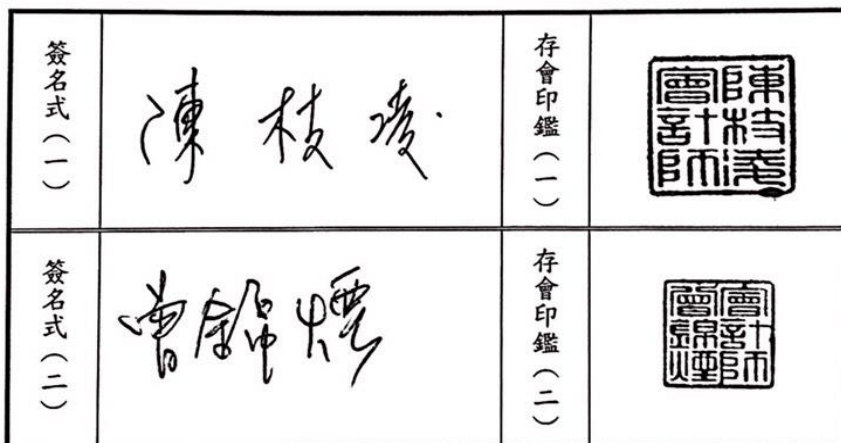 簽名式(一)
陳枝凌
存會印鑑(一)
陳枝凌
會計師
簽名式(二)
曾錦煙
存會印鑑(二)
會計師
曾錦煙